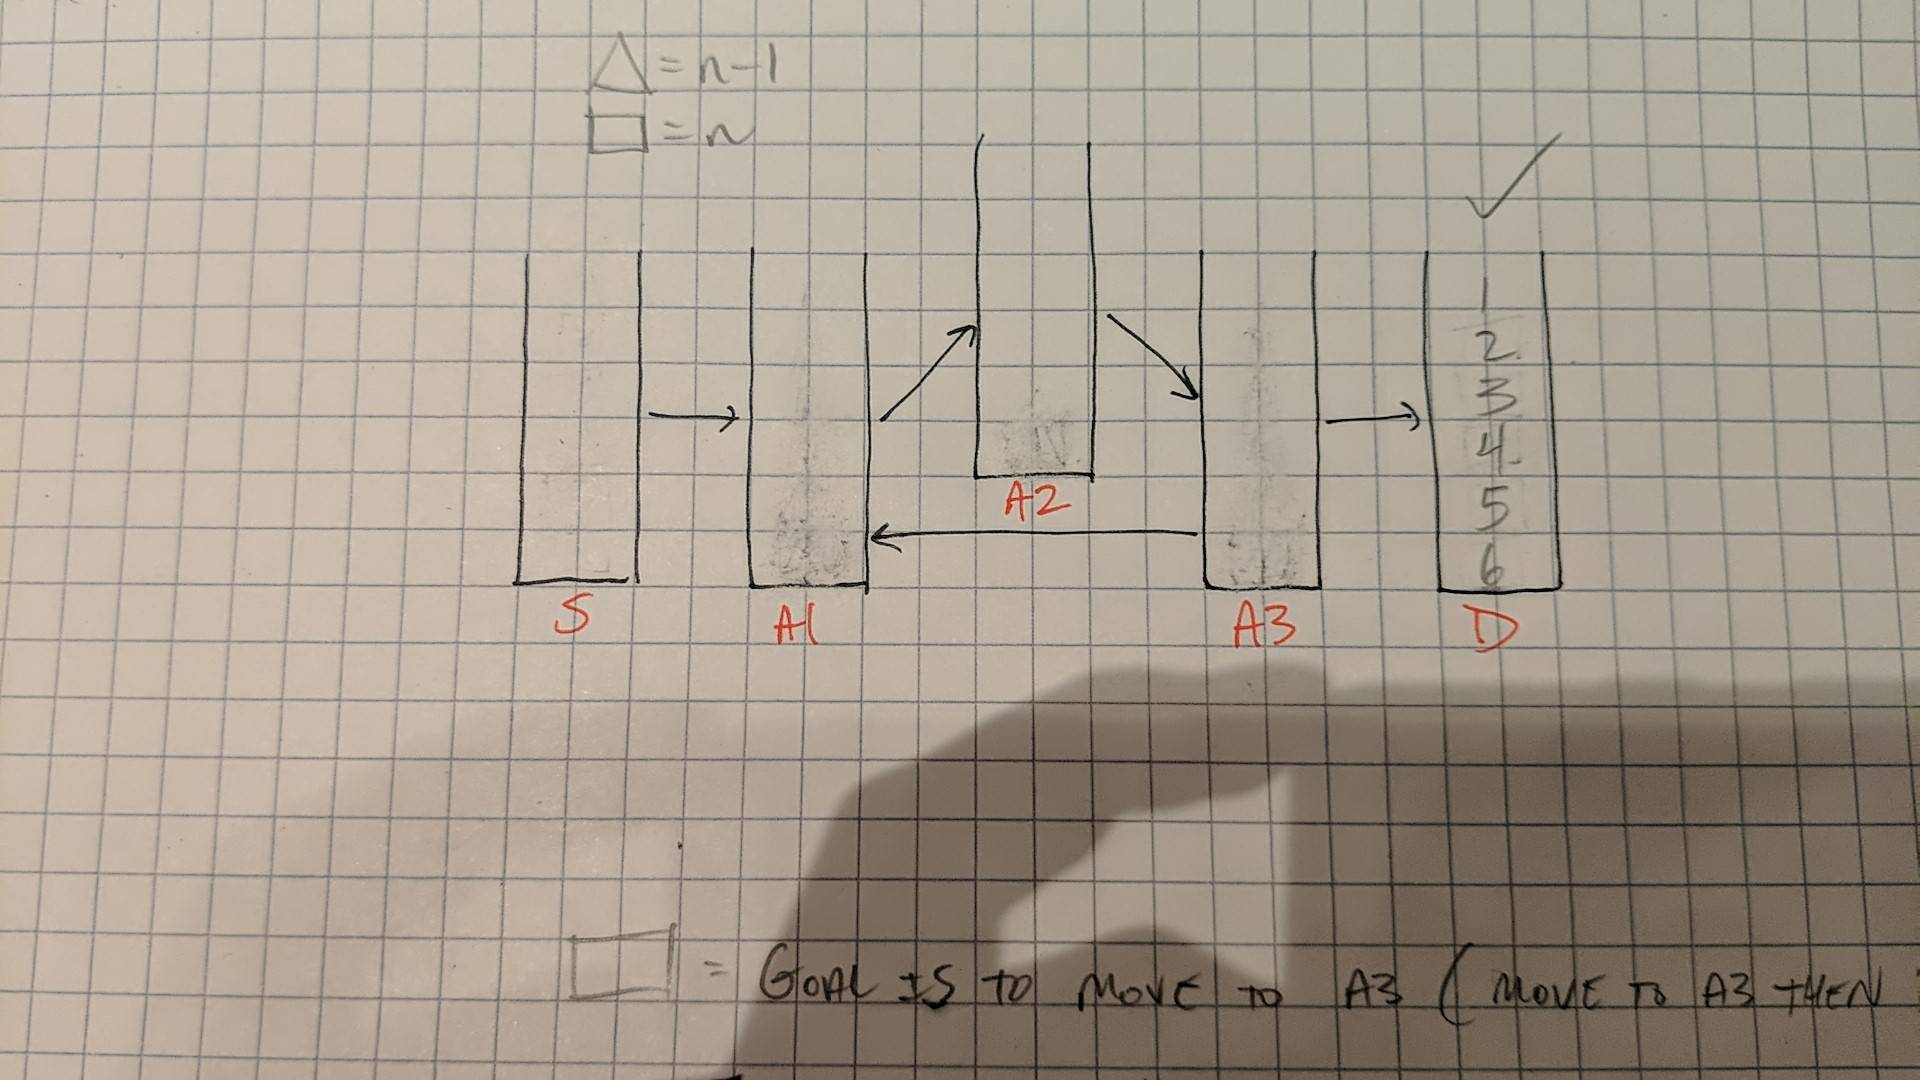 △ = n-1
□ = n
✓
1
2
3
4
5
6
A2
S
A1
A3
D
□ = GOAL IS TO MOVE TO A3 (MOVE TO A3 THEN